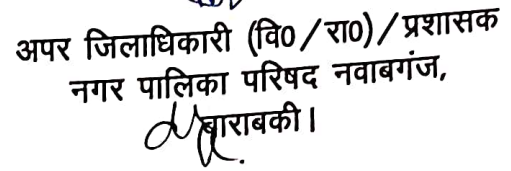 अपर जिलाधिकारी (वि0/रा0)/प्रशासक
नगर पालिका परिषद नवाबगंज,
बाराबकी।